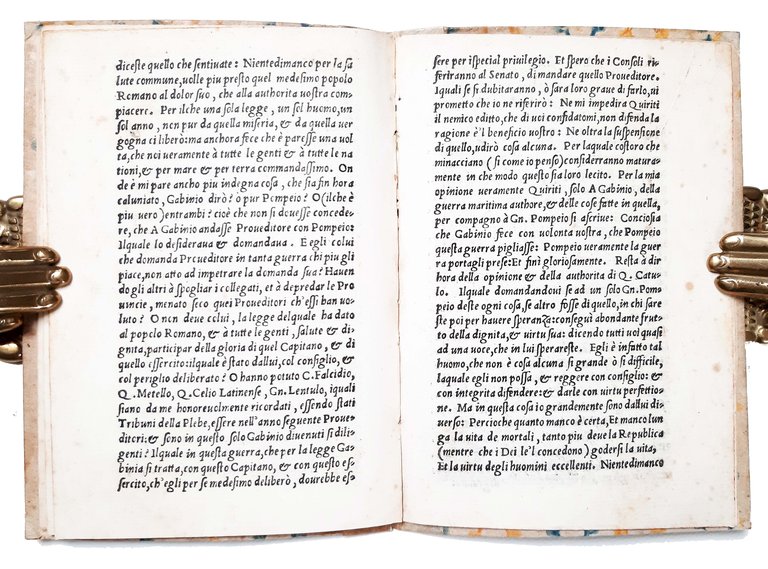 diceste quello che sentiuate: Nientedimanco per la sa
lute commune, uolle piu presto quel medesimo popolo
Romano al dolor suo, che alla authorita uostra com-
piacere. Per ilche una sola legge, un sol huomo, un
sol anno, non pur da quella miseria, & da quella uer
gogna ci liberò: ma anchora fece che è paresse una uol
ta, che noi ueramente à tutte le genti & à tutte le na
tioni, & per mare & per terra commandassimo. On
de è mi pare ancho piu indegna cosa, che sia fin hora
caluniato, Gabinio dirò? ò pur Pompeio? O (ilche è
piu uero) entrambi? cioè che non si douesse concede-
re, che A Gabinio andasse Proueditore con Pompeio:
Ilquale lo desideraua & domandaua. E egli colui
che domanda Proueditore in tanta guerra chi piu gli
piace, non atto ad impetrare la domanda sua? Hauen
do gli altri à spogliar i collegati, et à depredar le Pro
uincie, menato seco quei Proueditori ch'essi han uo-
luto? O non deue colui, la legge delquale ha dato
al popolo Romano, & à tutte le genti, salute & di-
gnita, participar della gloria di quel Capitano, & di
quello essercito: ilquale è stato dallui, col consiglio, &
col periglio deliberato? O hanno potuto C. Falcidio,
Q. Metello, Q. Celio Latinense, Gn. Lentulo, iquali
siano da me honoreuolmente ricordati, essendo stati
Tribuni della Plebe, essere nell'anno seguente Proue-
ditori: & sono in questo solo Gabinio diuenuti si dili-
genti? Ilquale in questa guerra, che per la legge Ga-
binia si tratta, con questo Capitano, & con questo es-
sercito, ch'egli per se medesimo deliberò, dourebbe es-
sere per ispecial priuilegio. Et spero che i Consoli ri-
feriranno al Senato, di mandare quello Proueditore.
Iquali se si dubitaranno, ò sara loro graue di farlo, ui
prometto che io ne riferirò: Ne mi impedira Quiriti
il nemico editto, che di uoi confidatomi, non difenda la
ragione e'l beneficio uostro: Ne oltra la suspensione
di quello, udirò cosa alcuna. Per laquale costoro che
minacciano (si come io penso) considerranno matura-
mente in che modo questo sia loro lecito. Per la mia
opinione ueramente Quiriti, solo A Gabinio, della
guerra maritima authore, & delle cose fatte in quella,
per compagno à Gn. Pompeio si ascriue: Conciosia
che Gabinio fece con uolonta uostra, che Pompeio
questa guerra pigliasse: Pompeio ueramente la guer
ra portagli prese: Et finì gloriosamente. Resta à di
hora della opinione & della authorita di Q. Catu-
lo. Ilquale domandando ui se ad un solo Gn. Pom-
peio deste ogni cosa, se altro fosse di quello, in chi sare
ste poi per hauere speranza: conseguì abondante frut-
to della dignita, & uirtu sua: dicendo tutti uoi quasi
ad una uoce, che in lui sperareste. Egli è in fatto tal
huomo, che non è cosa alcuna si grande ò si difficile,
laquale egli non possa, & reggere con consiglio: &
con integrita difendere: & darle con uirtu perfettio-
ne. Ma in questa cosa io grandemente sono dallui di-
uerso: Percioche quanto manco è certa, Et manco lun
ga la uita de mortali, tanto piu deue la Republica
(mentre che i Dei le'l concedono) godersi la uita,
Et la uirtu degli huomini eccellenti. Nientedimanco